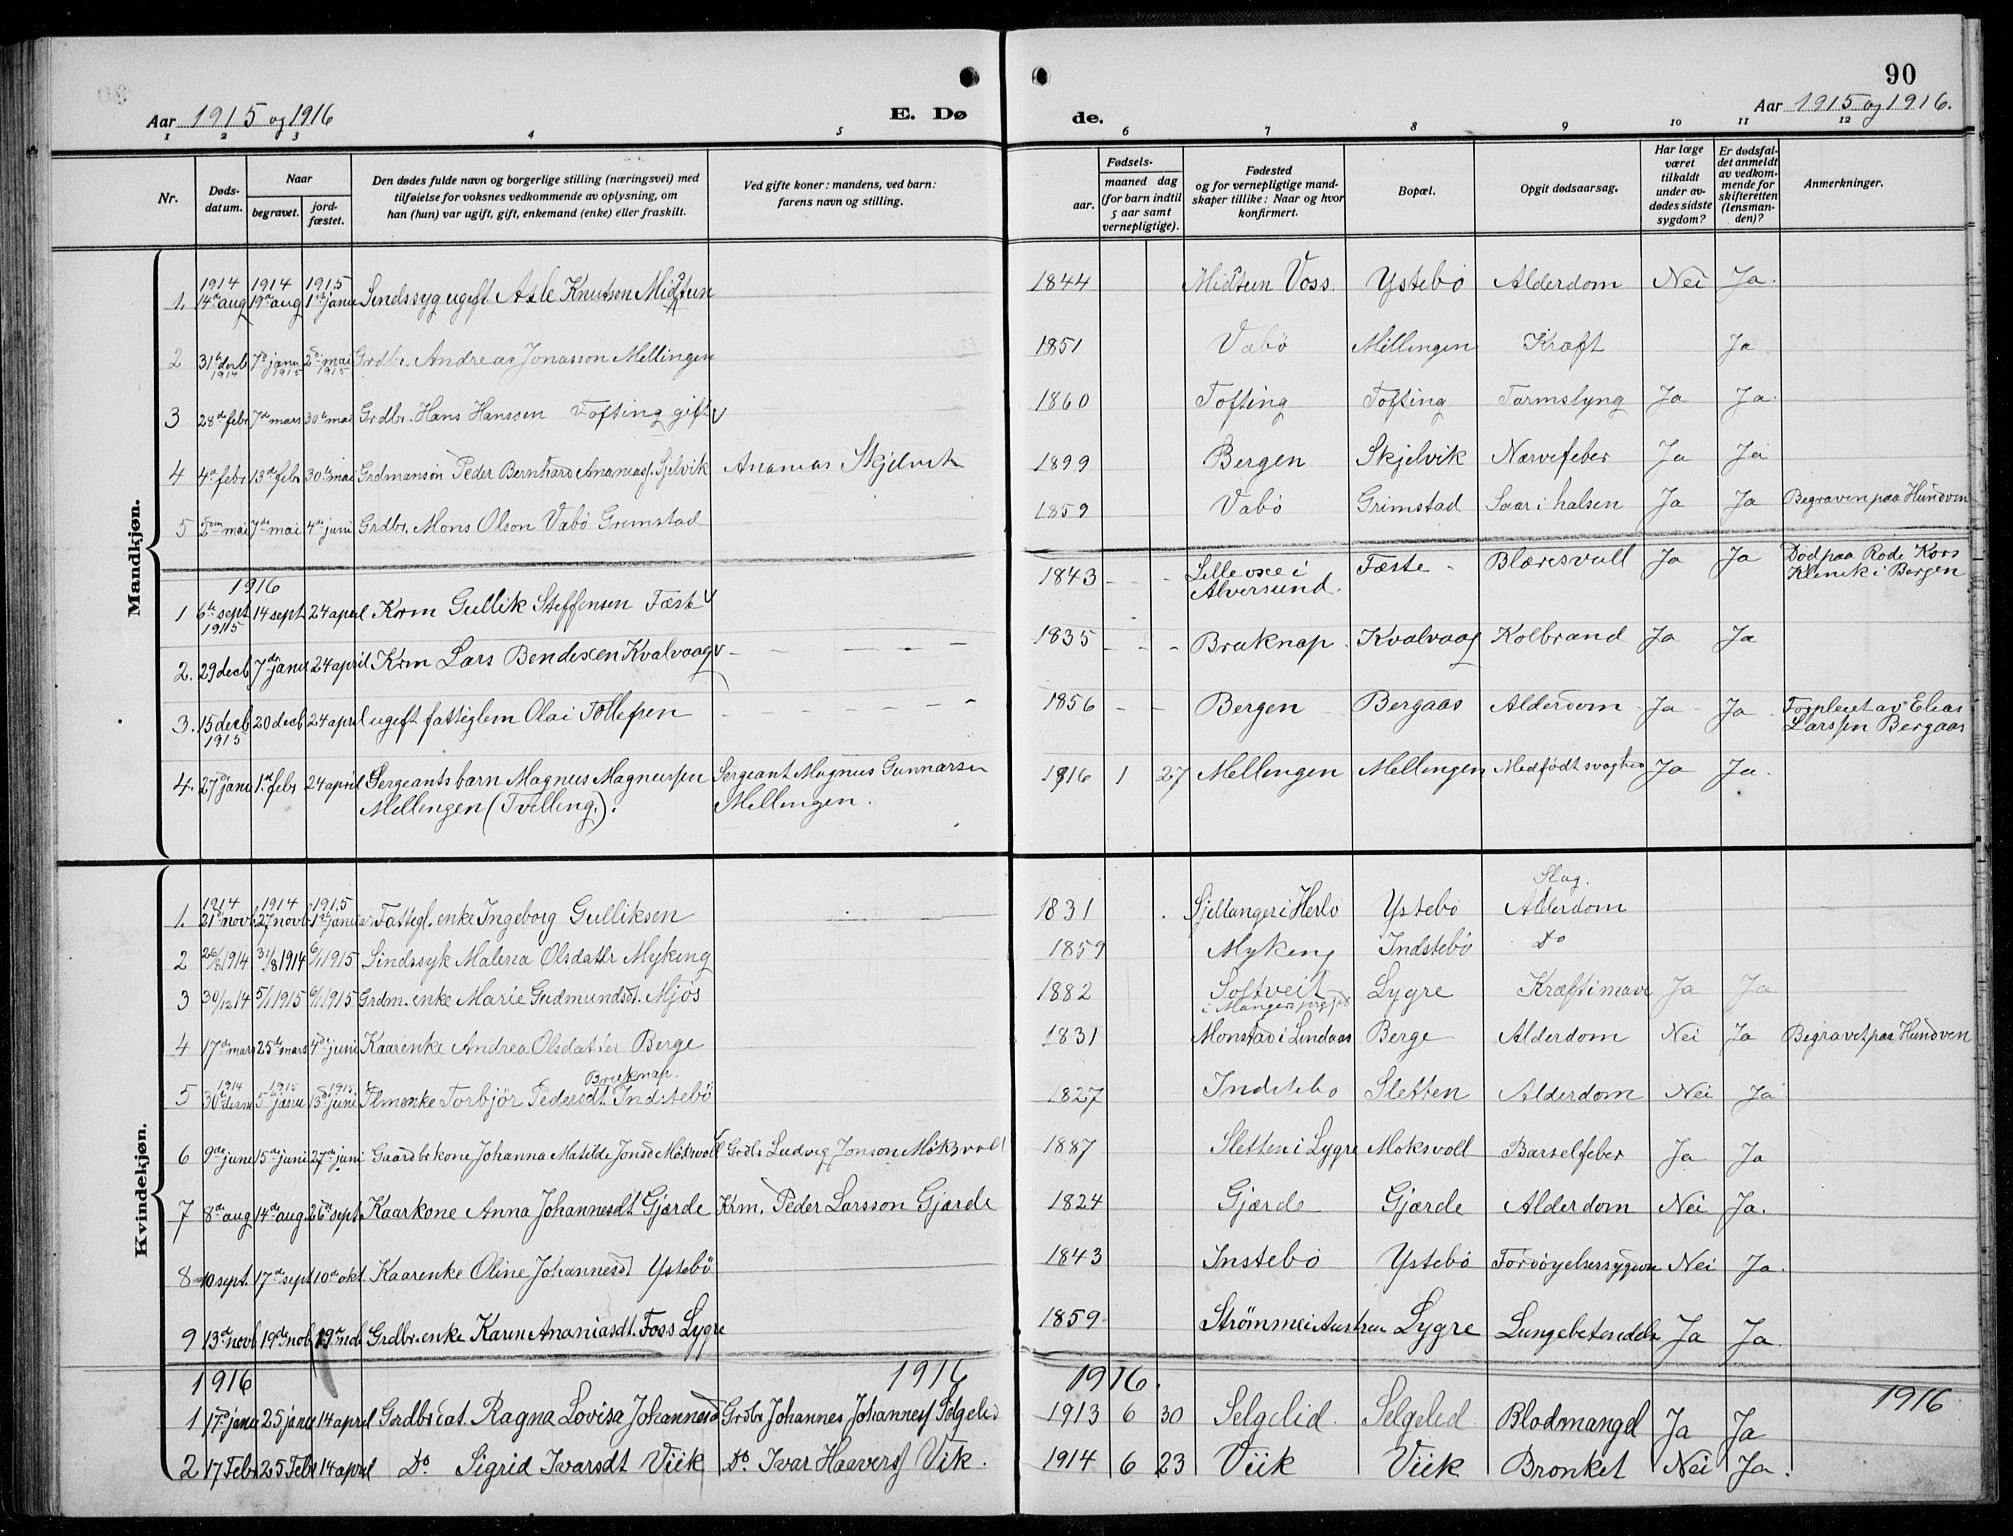 90
Aar 1915 og 1916
E. Dø
de.
Aar 1915 og 1916.
1 2 3 4 5 6 7 8 9 10 11 12
Nr.
Døds-
datum.
Naar
begravet.
jord-
fæstet.
Den dødes fulde navn og borgerlige stilling (næringsvei) med
tilføielse for voksnes vedkommende av oplysning, om
han (hun) var ugift, gift, enkemand (enke) eller fraskilt.
Ved gifte koner: mandens, ved barn:
farens navn og stilling.
Fødsels-
aar.
maaned dag
(for barn indtil
5 aar samt
vernepligtige).
Fødested
og for vernepligtige mand-
skaper tillike: Naar og hvor
konfirmert.
Bopæl.
Opgit dødsaarsag.
Har læge
været
tilkaldt
under av-
dødes sidste
sygdom?
Er dødsfal-
det anmeldt
av vedkom-
mende for
skifteretten
(lensman-
den)?
Anmerkninger.
Mandkjøn.
1914 1914 1915
1. 14de aug 19de aug 1ste janu Sindssyg ugift Asle Knutsen Midtun 1844 Midtun Voss. Ystebö Alderdom Nei Ja.
2 31te decb 1914 7de janu 1915 2den mai 1915 Grdbr. Andreas Jonasson Mellingen 1851 Vabö Mellingen Kræft Ja
3 28de febr 7de mars 30te mai Grdbr. Hans Hanssen Tofting gift 1860 Tofting Tofting Tarmslyng Ja Ja.
4 4de febr 13de febr 30te mai Grdmansön Peder Bernhard Ananiass. Sjelvik Ananias Skjelvik 1899 Bergen Skjelvik Nervefeber Ja Ja
5 2den mai 7de mai 4de juni Grdbr. Mons Olson Vabö Grimstad 1859 Vabö Grimstad Saar i halsen Ja Ja Begraven paa Hundven
1916
1 6te sept 1915 14 sept 24 april Krm Gullik Steffensen Fæste 1843 Lilleoxe i Alversund. Fæste Blæresvull Ja Ja Död paa Röde Kors Klinik i Bergen
2. 29 decb 7de janu 24 april Krm Lars Bendixen Kvalvaag 1835 Bruknap Kvalvaag Kolbrand Ja Ja
3. 15 decb 1915 20 decb 24 april ugift fattiglem Olai Tollefsen 1856 Bergen Bergaas Alderdom Ja Ja Forpleiet av Elias Larssen Bergaas
4. 27de janu 1ste febr 24 april Sergeants barn Magnus Magnussen Sergeant Magnus Gunnarsen 1916 1 27 Mellingen Mellingen Medfödt svaghed Ja Ja.
Mellingen (Tvilling). Mellingen.
Kvindekjøn.
1914 1914 1915
1. 21de novb 27 novb 1ste janu Fattigl. enke Ingeborg Gulliksen 1831 Sjellanger i Herlö Ystebö Slag. Alderdom
2 26/8 1914 31/8 1914 6/1 1915 Sindssyk Malena Olsdattr Myking 1859 Myking Indstebö Do
3 30/12 14 5/1 1915 6/1 1915 Grdm. enke Marie Gudmundsdt. Mjös 1882 Soltveit i Manger prgjd Lygre Kræft i mave Ja Ja
4 17de mars 25de mars 4de juni Kaarenke Andrea Olsdatter Berge 1831 Monstad i Lindaas Berge Alderdom Nei Ja Begravet paa Hundven
1914 1915 1915 Bruknap.
5 30te decbr 5te janu 13de juni Flmenke Torbjör Pedersdt. Indstebö 1827 Indstebö Sletten Alderdom Nei Ja
6 9de juni 15de juni 27de juni Gaardbrkone Johanna Matilde Jonsd. Möksvoll Grdbr. Ludvig Jonson Möksvoll 1887 Sletten i Lygre Moksvoll Barselfeber Ja Ja
7 8de aug 14de aug. 26de sept. Kaarkone Anna Johannesdt Gjærde Krm. Peder Larsson Gjærde 1824 Gjærde Gjærde Alderdom Nei Ja.
8 10 sept. 17de sept 10de okt. Kaarenke Oline Johannesdt Ystebö 1843 Instebö Ystebö Fordöyelsessygdom Nei Ja.
9 13de novb 19de nob 19de nob Grdbr. enke Karen Ananiasdt. Foss Lygre 1859 Strömme i Austreim Lygre Lungebetendels Ja Ja.
1916 1916 1916. 1916
1 17de janu 25 janu 14 april Gardbr dat. Ragna Lovisa Johannesd Grdbr Johannes Johanness Selgelid 1913 6 30 Selgelid. Selgelid Blodmangel Ja Ja
2 17 Febr 25 Febr 14 april Do. Sigrid Ivarsdt Viik Do. Ivar Haavers Vik. 1914 6 23 Viik Viik Bronkit Nei Ja.